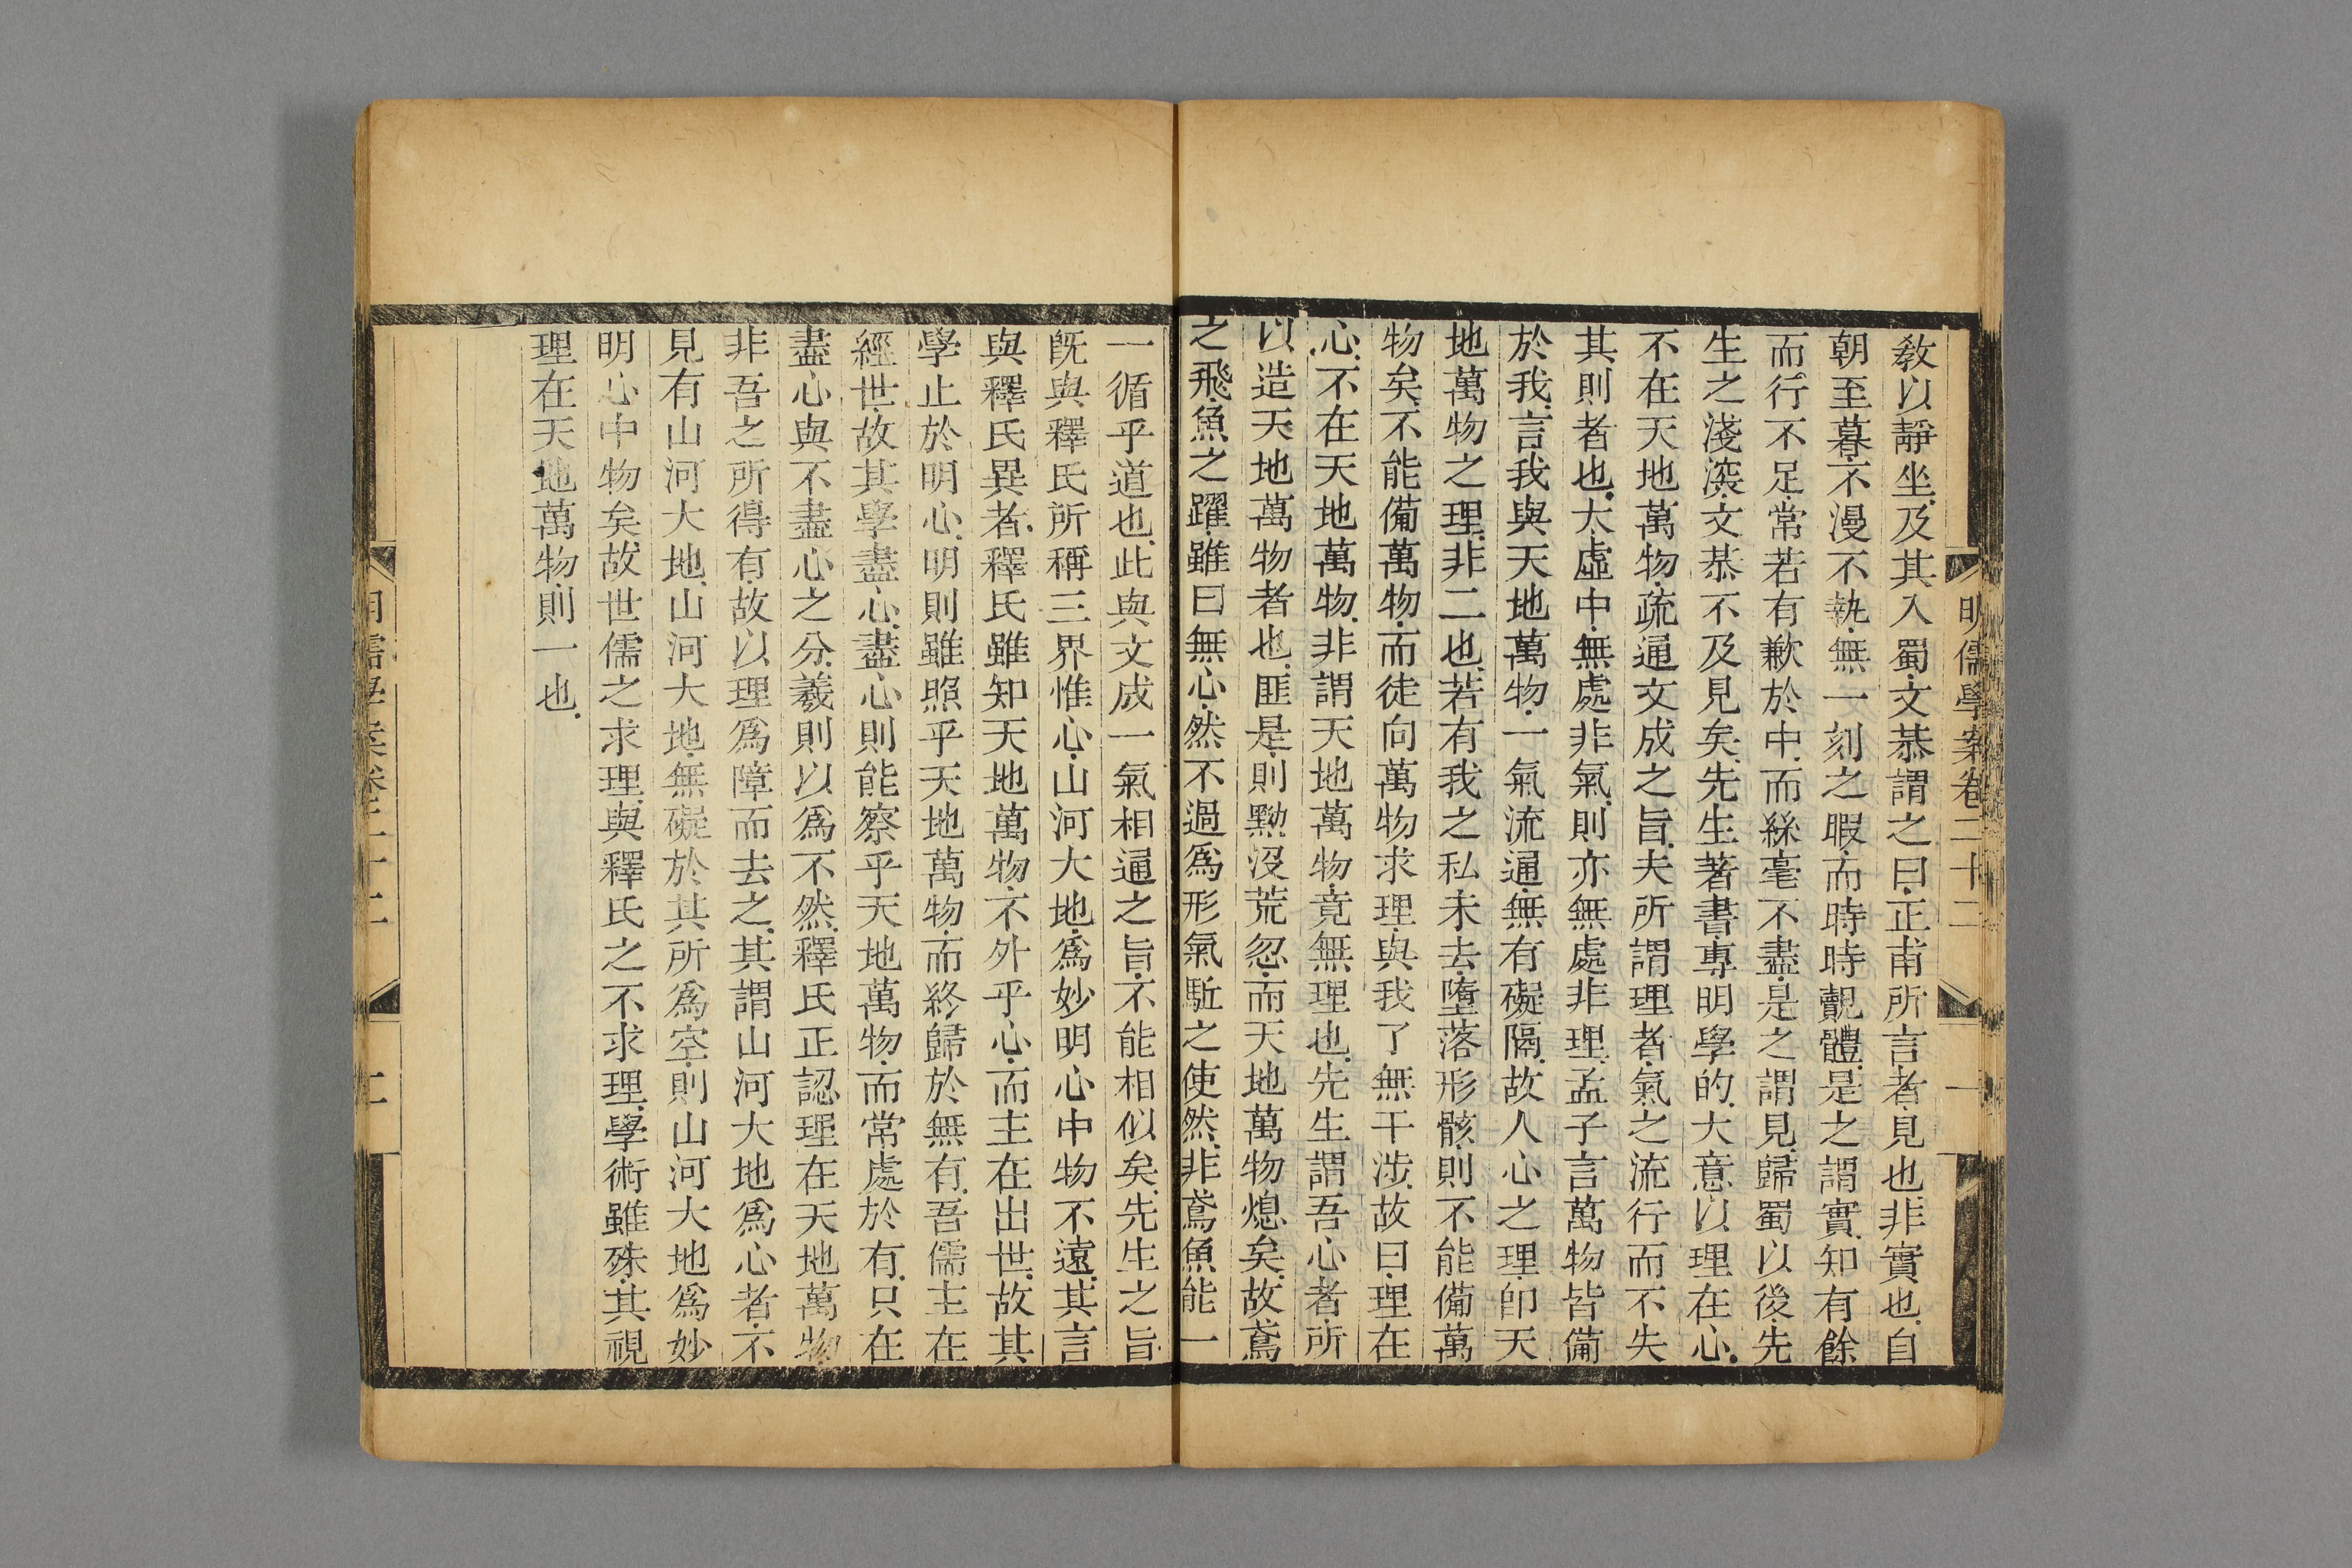 明儒學案卷二十二
一
敎以靜坐及其入蜀文恭謂之曰正甫所言者見也非實也自
朝至暮不漫不執無一刻之暇而時時覿體是之謂實知有餘
而行不足常若有歉於中而絲毫不盡是之謂見歸蜀以後先
生之淺深文恭不及見矣先生著書專明學的大意以理在心
不在天地萬物疏通文成之旨夫所謂理者氣之流行而不失
其則者也太虛中無處非氣則亦無處非理孟子言萬物皆備
於我言我與天地萬物一氣流通無有礙隔故人心之理卽天
地萬物之理非二也若有我之私未去墮落形骸則不能備萬
物矣不能備萬物而徒向萬物求理與我了無干涉故曰理在
心不在天地萬物非謂天地萬物竟無理也先生謂吾心者所
以造天地萬物者也匪是則黝沒荒忽而天地萬物熄矣故鳶
之飛魚之躍雖曰無心然不過爲形氣駈之使然非鳶魚能一
一循乎道也此與文成一氣相通之旨不能相似矣先生之旨
旣與釋氏所稱三界惟心山河大地爲妙明心中物不遠其言
與釋氏異者釋氏雖知天地萬物不外乎心而主在出世故其
學止於明心明則雖照乎天地萬物而終歸於無有吾儒主在
經世故其學盡心盡心則能察乎天地萬物而常處於有只在
盡心與不盡心之分羲則以爲不然釋氏正認理在天地萬物
非吾之所得有故以理爲障而去之其謂山河大地爲心者不
見有山河大地山河大地無礙於其所爲空則山河大地爲妙
明心中物矣故世儒之求理與釋氏之不求理學術雖殊其視
理在天地萬物則一也
明儒學案卷二十二
二